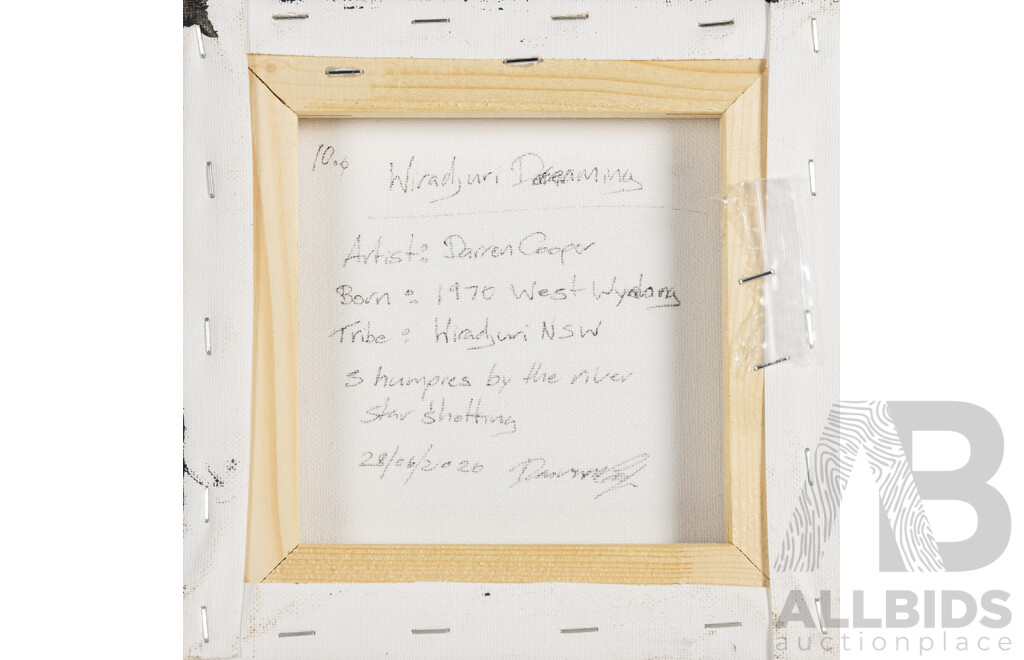 10.
Wiradjuri Dreaming
Artist: Darren Cooper
Born: 1970 West Wyalong
Tribe: Wiradjuri NSW
3 humpies by the river
Star Shotting
28/06/2020
ALLBIDS
auctionplace